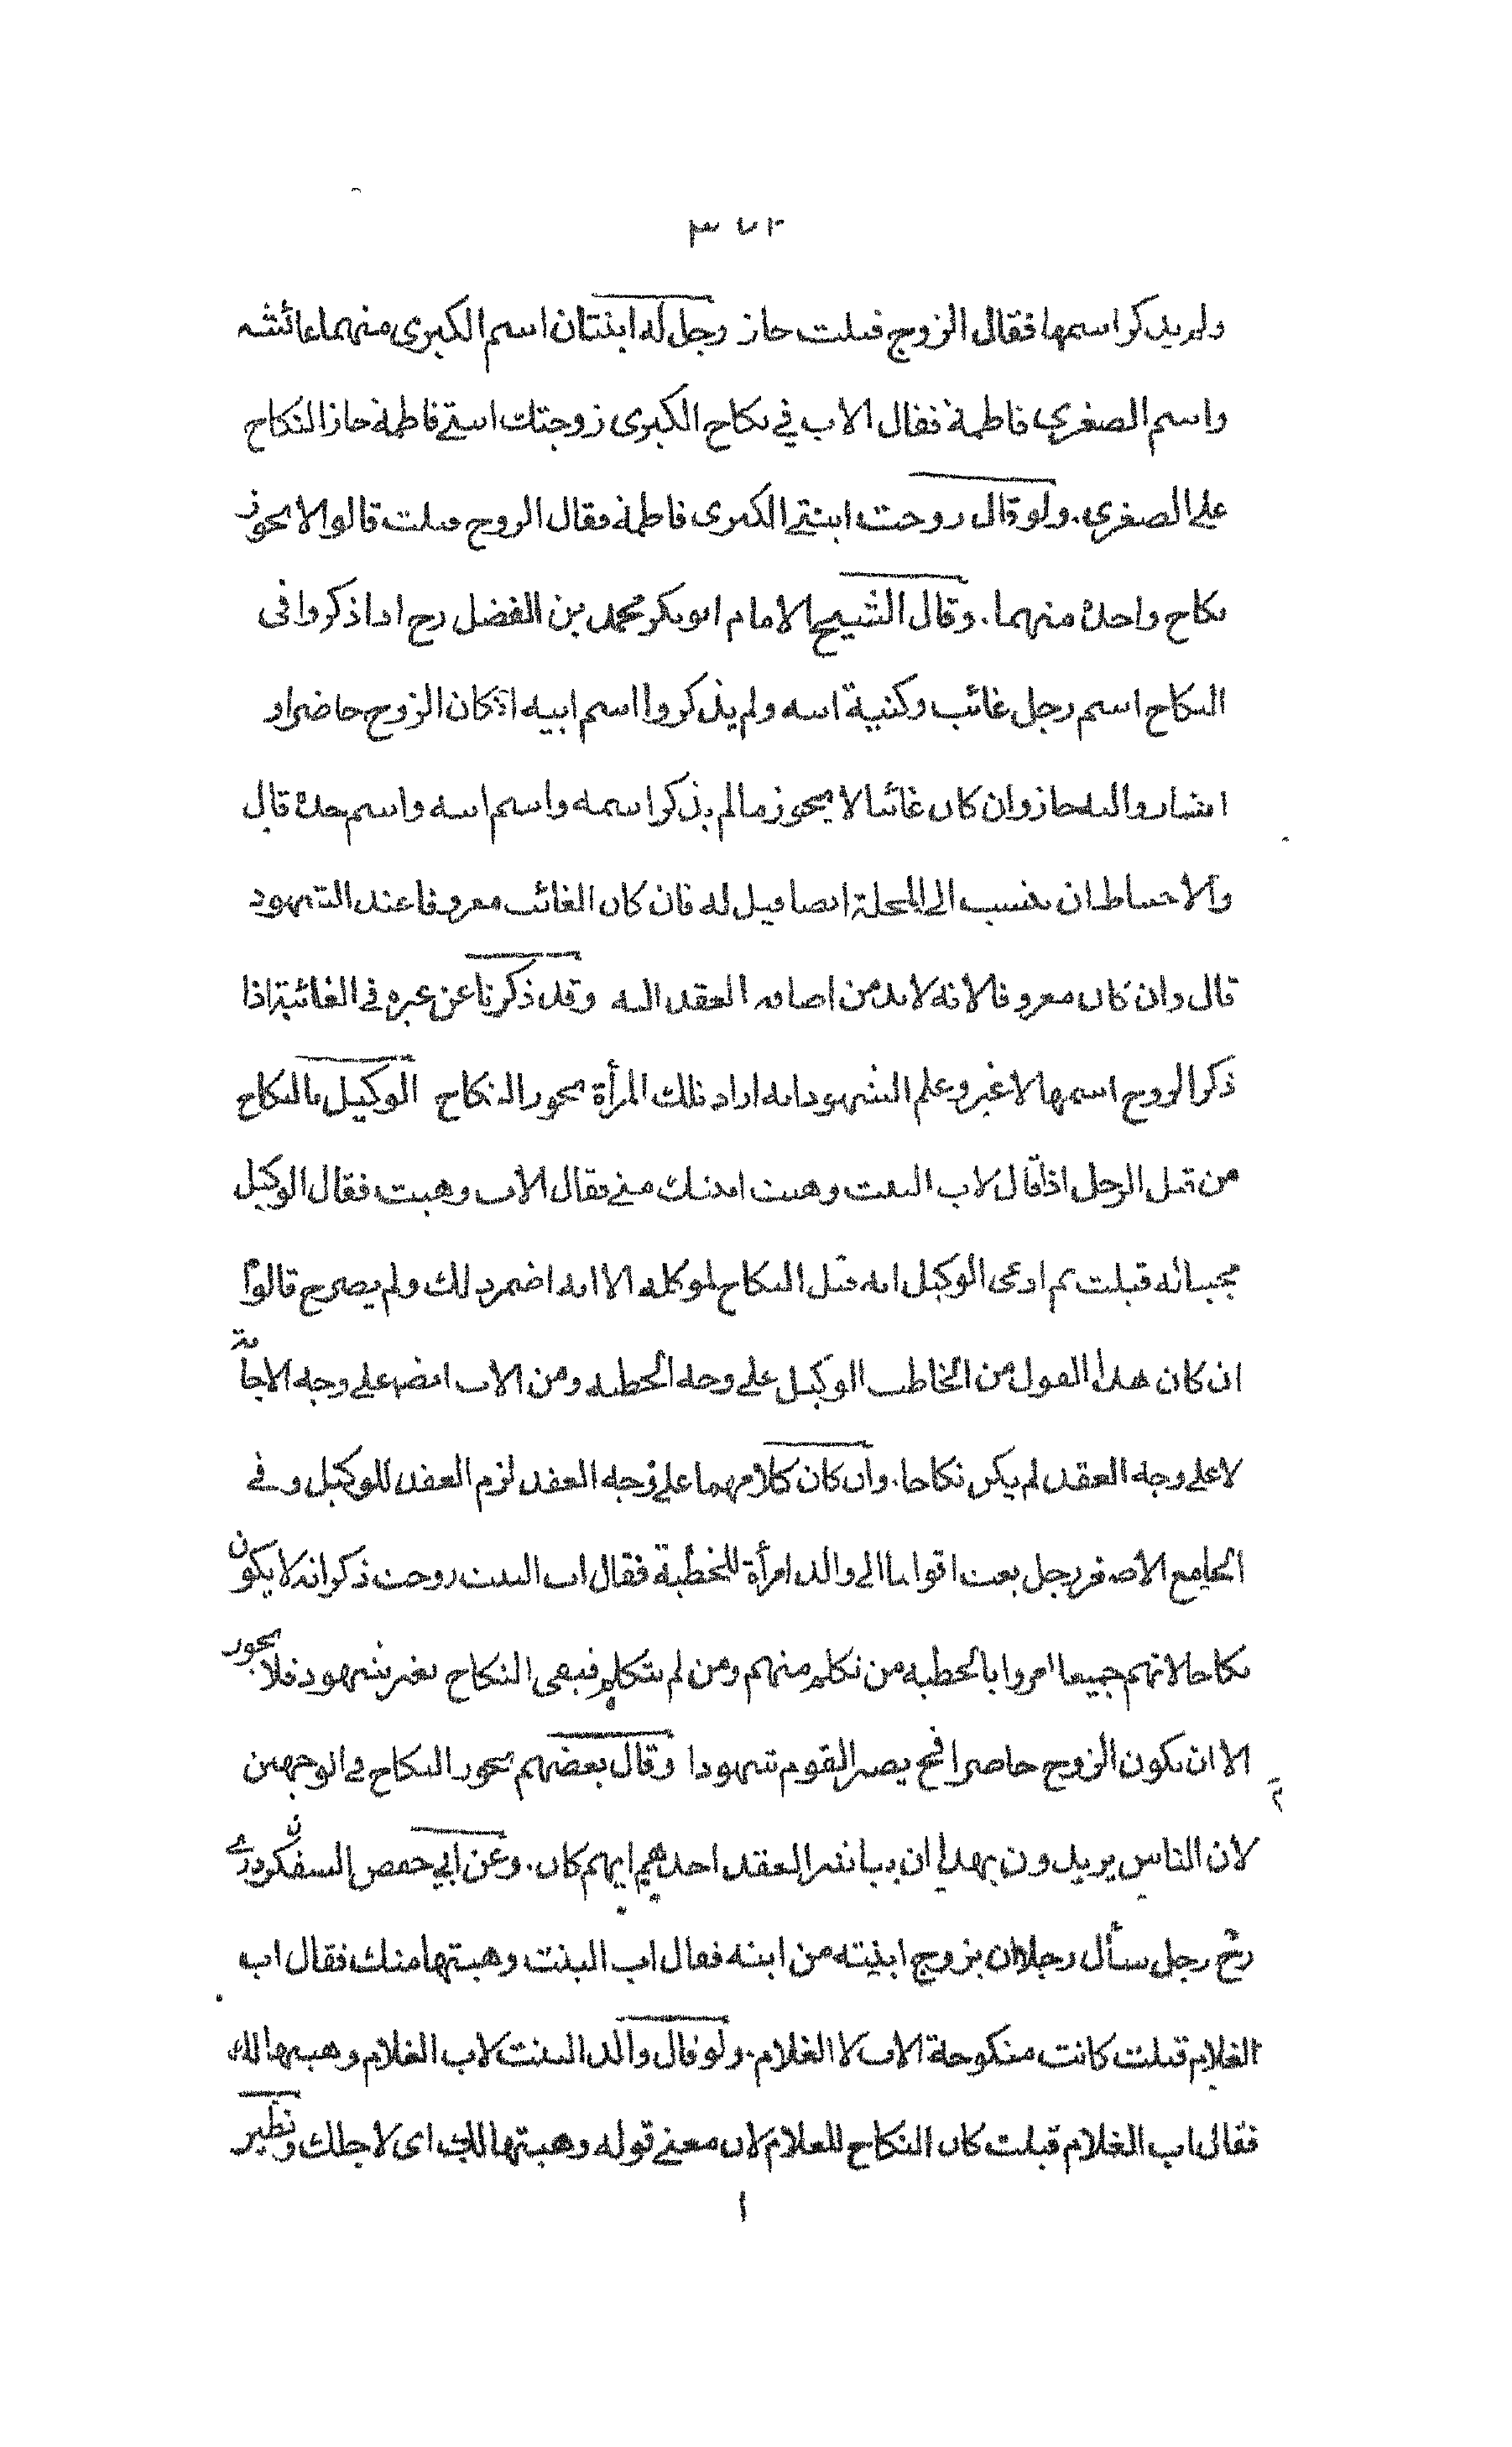 ولم يذكر اسمها فقال الزوج قبلت جاز رجل له ابنتان اسم الكبرى منهما عائشة
واسم الصغرى فاطمة فقال الاب في نكاح الكبرى زوجتك ابنتي فاطمة جاز النكاح
على الصغرى. ولو قال زوجت ابنتي الكبرى فاطمة فقال الزوج قبلت قالوا لا يجوز
نكاح واحدة منهما. وقال الشيخ الامام ابوبكر محمد بن الفضل رح اذا ذكروا في
النكاح اسم رجل غائب وكنية ابيه ولم يذكروا اسم ابيه ان كان الزوج حاضرا و
اشاروا اليه جاز وان كان غائبا لا يجوز ما لم يذكر اسمه واسم ابيه واسم جده قال
والاحتياط ان ينسب الى المحلة ايضا قيل له فان كان الغائب معروفا عند الشهود
قال وان كان معروفا لانه لابد من اضافة العقد اليه وقد ذكرنا عن غيره في الغائبة اذا
ذكر الزوج اسمها لا غير وعلم الشهود انه اراد تلك المرأة يجوز النكاح الوكيل بالنكاح
من قبل الرجل اذا قال لاب البنت وهبت ابنتك مني فقال الاب وهبت فقال الوكيل
مجيبا له قبلت ثم ادعى الوكيل انه قبل النكاح لموكله الا انه اضمر ذلك ولم يصرح قالوا
ان كان هذا القول من الخاطب الوكيل على وجه الخطبة ومن الاب ايضا على وجه الاجابة
لا على وجه العقد لم يكن نكاحا. وان كان كلامهما على وجه العقد لزم العقد للوكيل و في
الجامع الاصغر رجل بعث اقواما الى والد امرأة للخطبة فقال اب البنت زوجت ذكر انه لا يكون
نكاحا لانهم جميعا امروا بالخطبة من تكلم منهم ومن لم يتكلم فبقي النكاح بغير شهود فلا يجوز
الا ان يكون الزوج حاضرا فح يصير القوم شهودا وقال بعضهم يجوز النكاح في الوجهين
لان الناس يريدون بهذا ان يباشر العقد احدهم ايهم كان. وعن ابي حفص السفكردري
رح رجل سأل رجلا ان يزوج ابنته من ابنه فقال اب البنت وهبتها منك فقال اب
الغلام قبلت كانت منكوحة الاب لا الغلام. ولو قال والد البنت لاب الغلام وهبتها لك
فقال اب الغلام قبلت كان النكاح للغلام لان معنى قوله وهبتها لك اى لاجلك ونظير